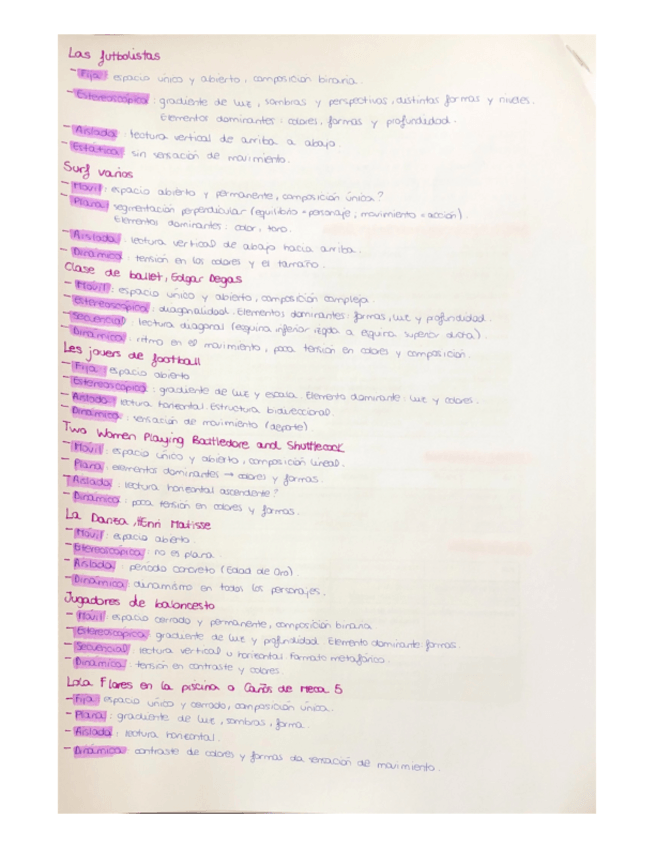 Las futbolistas
- Fija: espacio único y abierto, composición binaria.
- Estereoscópica: gradiente de luz, sombras y perspectivas, distintas formas y niveles.
Elementos dominantes: colores, formas y profundidad.
- Aislada: lectura vertical de arriba a abajo.
- Estática: sin sensación de movimiento.
Surf varios
- Móvil: espacio abierto y permanente, composición única?
- Plana: segmentación perpendicular (equilibrio = personaje; movimiento = acción).
Elementos dominantes: color, tono.
- Aislada: lectura vertical de abajo hacia arriba.
- Dinámica: tensión en los colores y el tamaño.
Clase de ballet, Edgar Degas
- Móvil: espacio único y abierto, composición compleja.
- Estereoscópica: diagonalidad. Elementos dominantes: formas, luz y profundidad.
- Secuencial: lectura diagonal (esquina inferior izqda a esquina superior dcha).
- Dinámica: ritmo en el movimiento, poca tensión en colores y composición.
Les jouers de football
- Fija: espacio abierto
- Estereoscópica: gradiente de luz y escala. Elemento dominante: luz y colores.
- Aislada: lectura horizontal. Estructura bidireccional.
- Dinámica: sensación de movimiento (deporte).
Two Women Playing Battledore and Shuttlecock
- Móvil: espacio único y abierto, composición lineal.
- Plana: elementos dominantes → colores y formas.
- Aislada: lectura horizontal ascendente?
- Dinámica: poca tensión en colores y formas.
La Danza, Henri Matisse
- Móvil: espacio abierto.
- Estereoscópica: no es plana.
- Aislada: período concreto (Edad de Oro).
- Dinámica: dinamismo en todos los personajes.
Jugadores de baloncesto
- Móvil: espacio cerrado y permanente, composición binaria
- Estereoscópica: gradiente de luz y profundidad. Elemento dominante: formas.
- Secuencial: lectura vertical u horizontal. Formato metafórico.
- Dinámica: tensión en contraste y colores.
Lola Flores en la piscina o Caños de Meca 5
- Fija: espacio único y cerrado, composición única.
- Plana: gradiente de luz, sombras, forma.
- Aislada: lectura horizontal.
- Dinámica: contraste de colores y formas da sensación de movimiento.